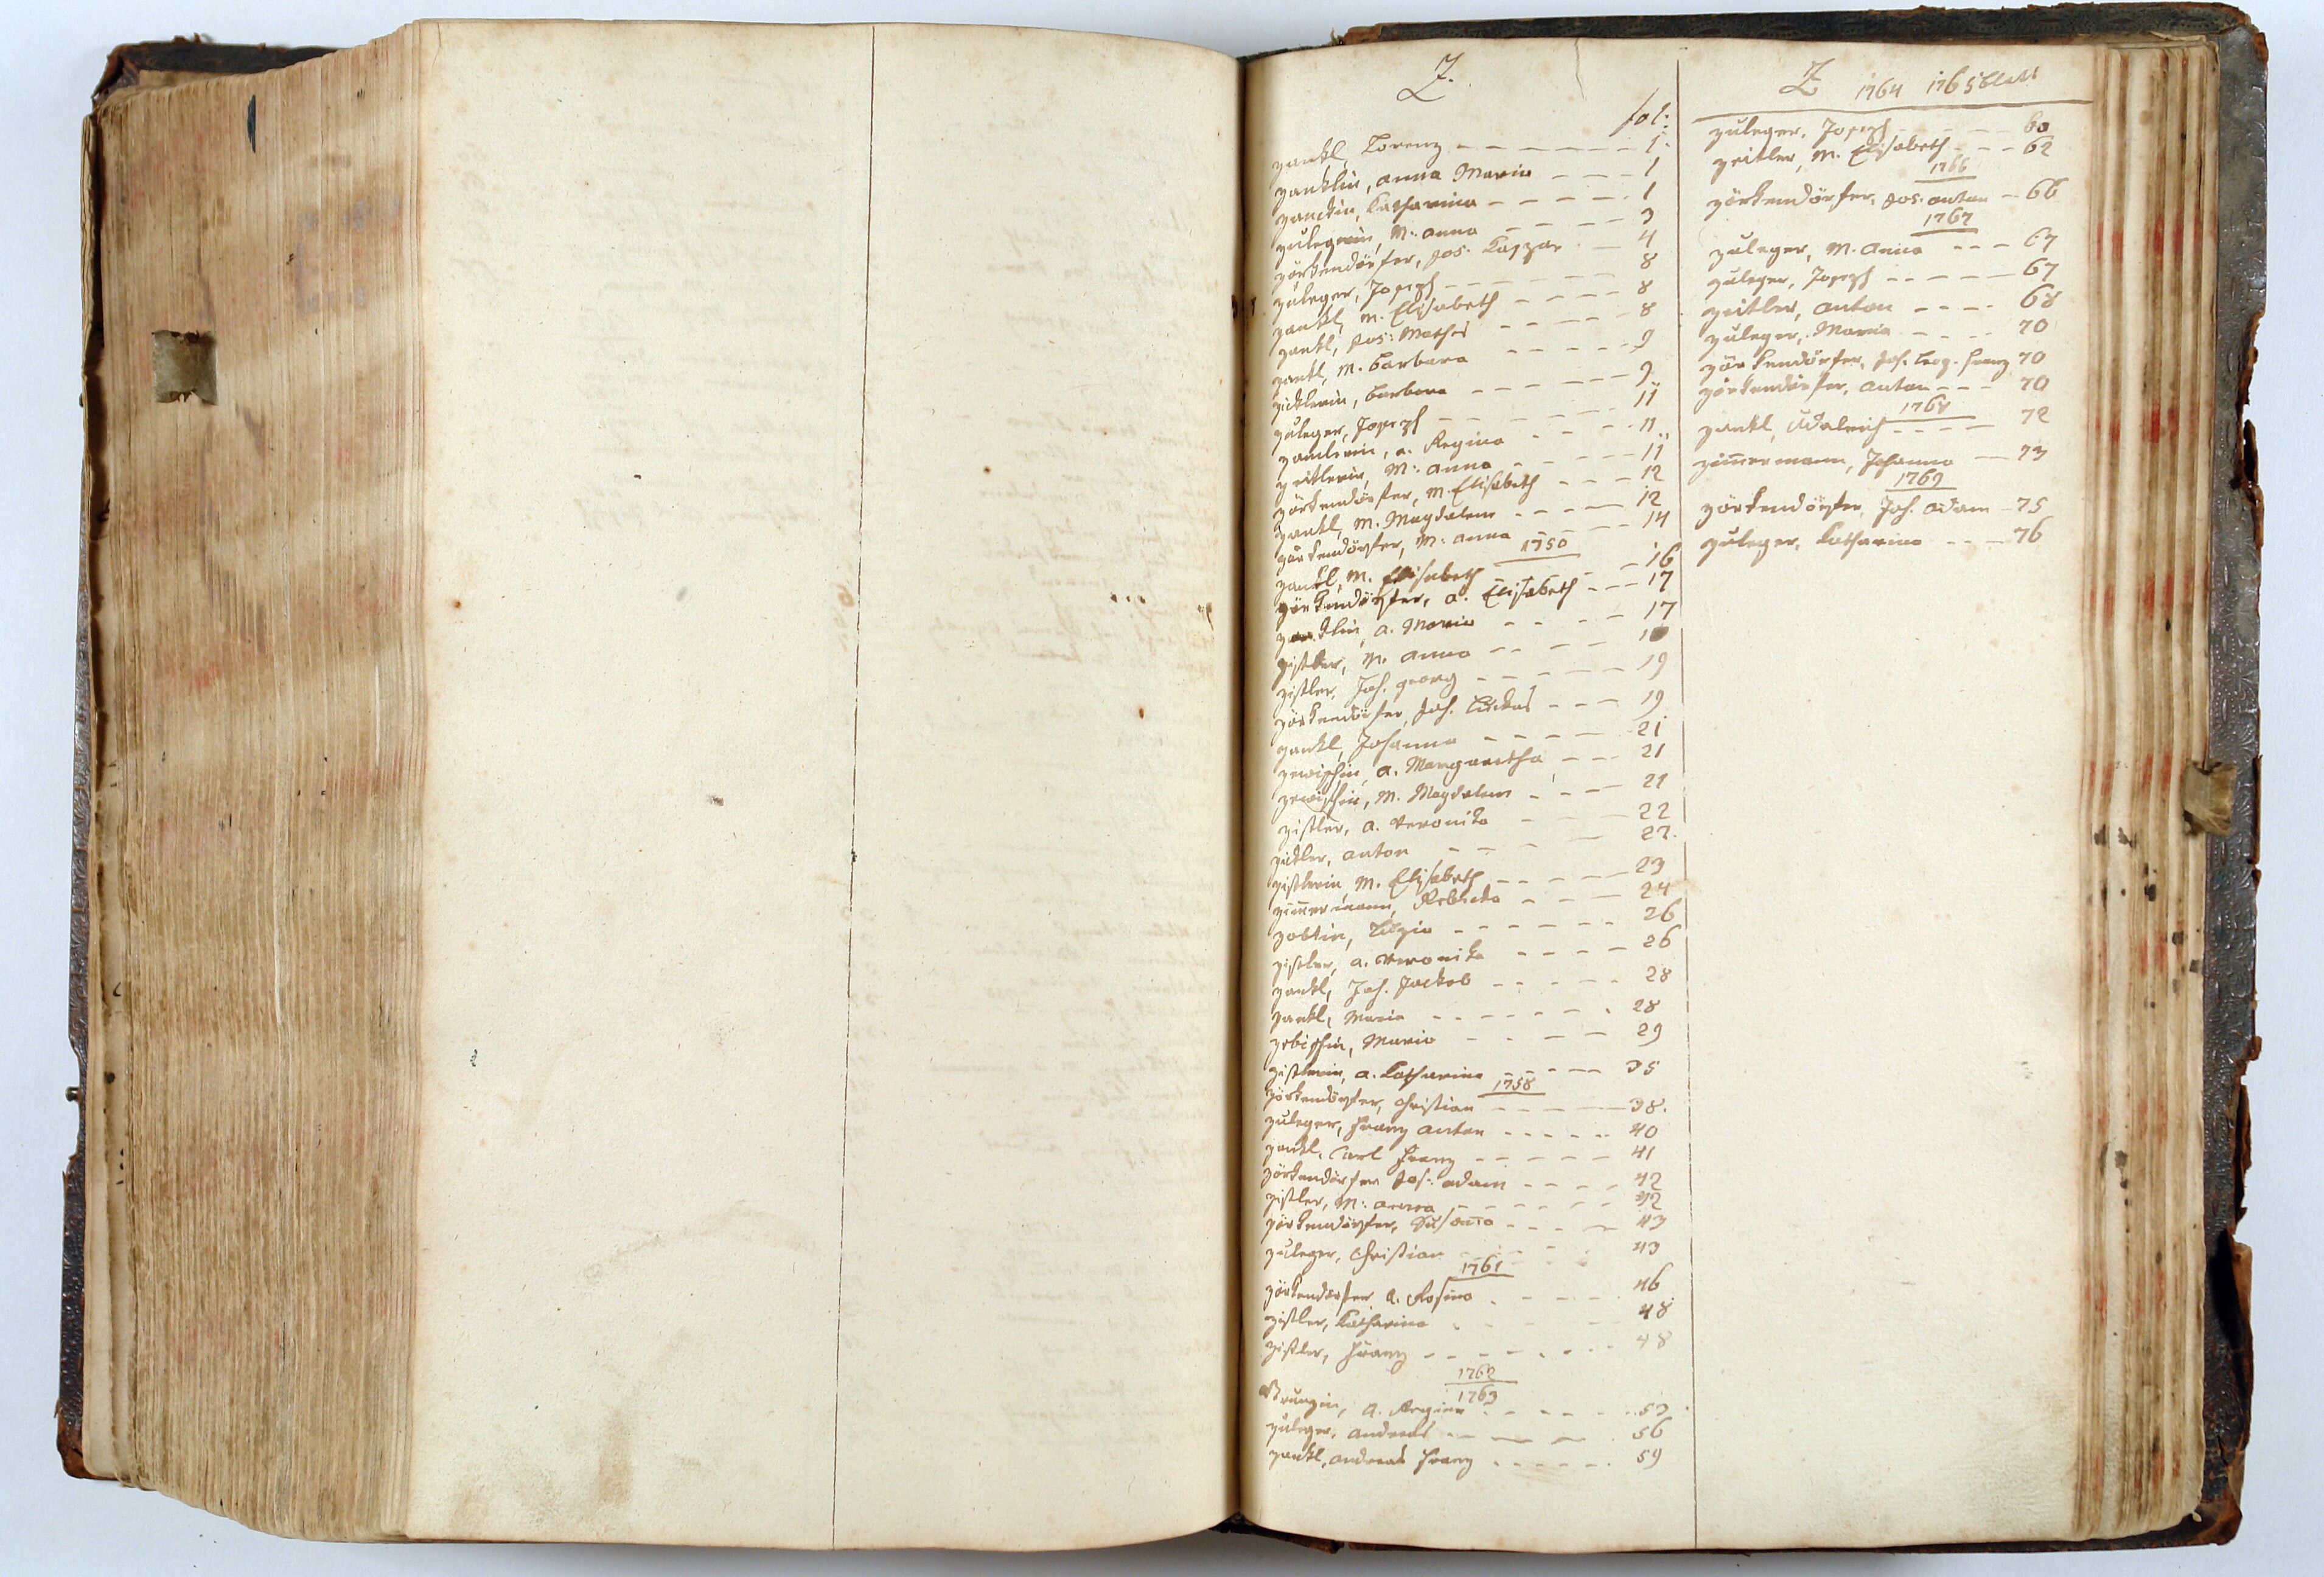 Z.
fol:
zankl, Lorenz 1.
zanklin, Anna Maria 1
zanckin, Catharina 1
zulegerin, M: Anna 3
zörkendörfer, Jos: Caspar 4
zuleger, Joseph 8
zankl, M. Elisabeth 8
zankl, Jos: Mathes 8
zankl, M. Barbara 9
zicklerin, Barbara 9
zuleger, Joseph 11
a. Regina 11
zeitlerin, M: Anna 11
zörkendörfer, M. Elisabeth 12
zankl, M. Magdalena 12
zörkendörfer, M: Anna 14
1750
zankl, M. Elisabeth 16
zörkendörfer, a. Elisabeth 17
zanklin, a. Maria 17
zistler, M. Anna
zistler, Joh. georg 19
zörkendörfer, Joh. Luckas 19
zankl, Johanna 21
a. Margaretha 21
M. Magdalena 21
zistler, a. Veronika 22
zickler, anton 22.
zistlerin, M. Elisabeth 23
zim̄ermann, Rebecka 24
26
zistler, a. Veronika 26
zankl, Joh. Jackob 28
zankl, Maria 28
zebischin, Maria 29
zistlerin, a. Catharina 35
1758
zörkendörfer, Christian 38.
zuleger, Franz anton 40
zankl, Carl Franz 41
zörkendörfer Jos: adam 42
zistler, M: Anna 42
zörkendörfer, Susan̄a 43
zuleger, Christian 43
1761
zörkendörfer a. Rosina 46
zistler, Catharina 48
zistler, Franz 48
1762
1763
a. Regina 53
zuleger, andreas 56
zankl, andreas Franz 59
Z 1764 1765 blatt
zuleger, Joseph 60
zeitler, M. Elisabeth 62
1766
zörkendörfer, Jos. anton 66
1767
zuleger, M. Anna 67
zuleger, Joseph 67
zeitler, anton 68
zuleger, Maria 70
zörkendörfer, Joh. Leop. Franz 70
zörkendörfer, anton 70
1768
zankl, Udalrich 72
zim̄ermann, Johanna 73
1769
zörkendörfer, Joh. adam 75
zuleger, Catharina 76